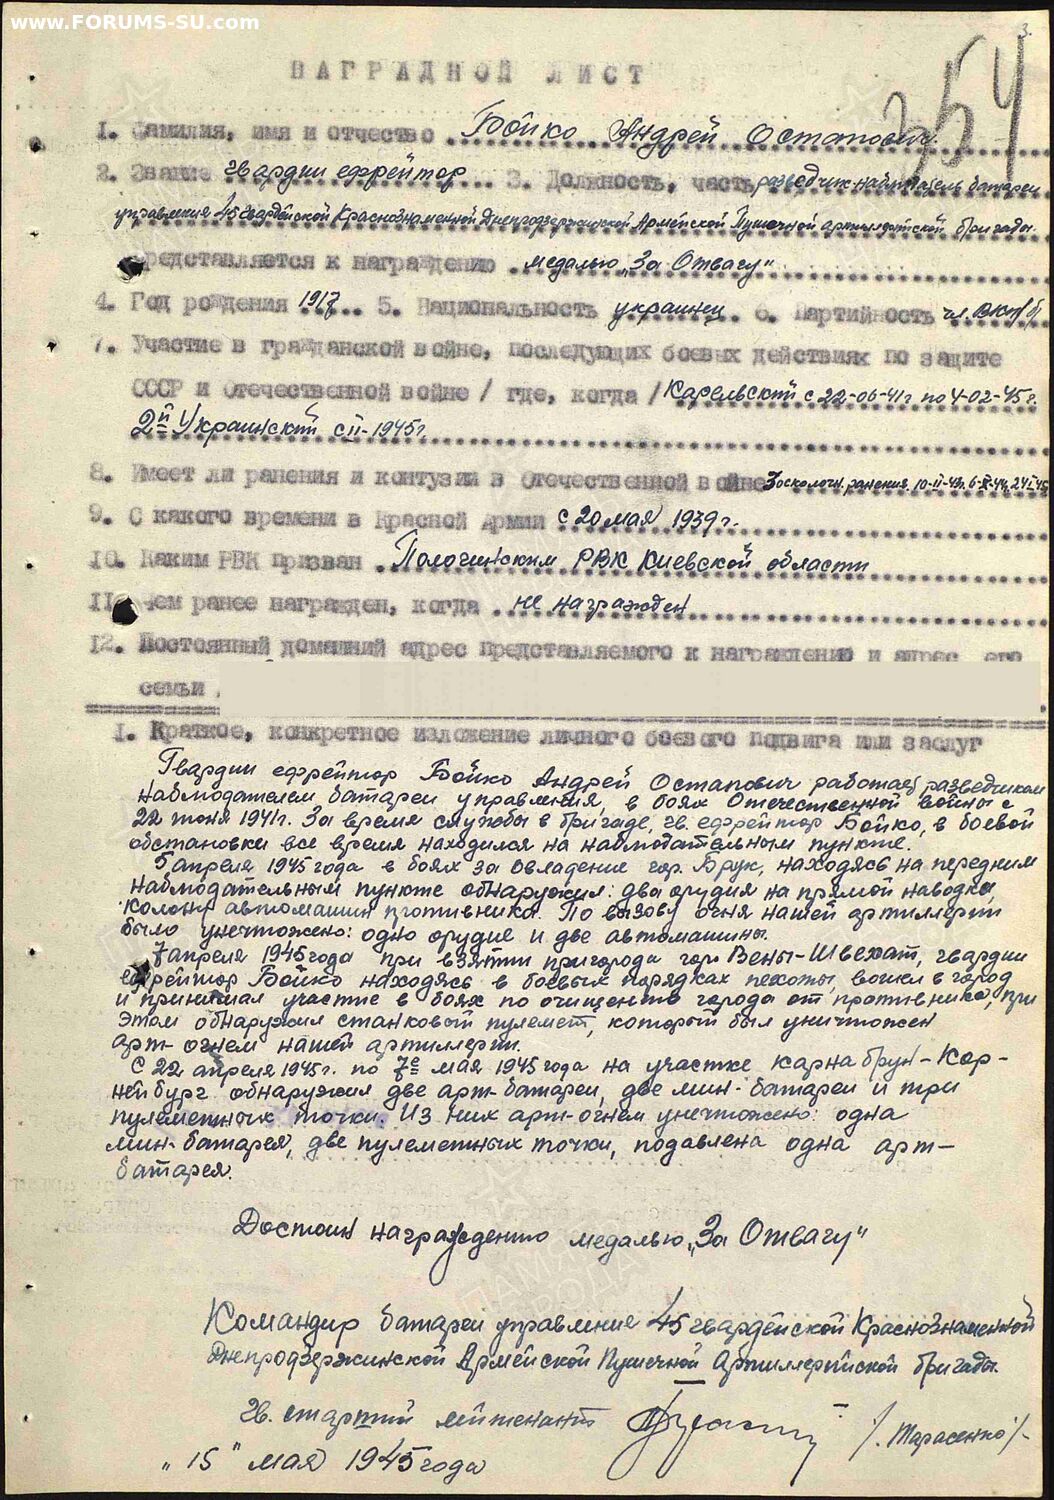 www.FORUMS-SU.com
3.
354
НАГРАДНОЙ ЛИСТ
1. Фамилия, имя и отчество Бойко Андрей Остапович.
2. Звание гвардии ефрейтор 3. Должность, часть разведчик наблюдатель батареи
управления 45 Гвардейской Краснознаменной Днепродзержинской Армейской Пушечной артиллерийской бригады.
представляется к награждению медалью „За Отвагу"
4. Год рождения 1917 5. Национальность украинец 6. Партийность чл. ВКП/б/
7. Участие в гражданской войне, последующих боевых действиях по защите
СССР и Отечественной войне / где, когда / Карельский с 22-06-41г по 4-02-45г.
2й Украинский с II-1945г
8. Имеет ли ранения и контузии в Отечественной войне 3 осколочн. ранения.
9. С какого времени в Красной Армии с 20 мая 1939 г.
10. Каким РВК призван РВК Киевской области
11. Чем ранее награжден, когда не награжден
12. Постоянный домашний адрес представляемого к награждению и адрес его
семьи
I. Краткое, конкретное изложение личного боевого подвига или заслуг
Гвардии ефрейтор Бойко Андрей Остапович работает разведчиком
наблюдателем батареи управления, в боях Отечественной войны с
22 июня 1941г. За время службы в бригаде, гв. ефрейтор Бойко, в боевой
обстановке все время находился на наблюдательном пункте.
5 апреля 1945 года в боях за овладение гор. Брук, находясь на переднем
наблюдательном пункте обнаружил: два орудия на прямой наводке,
колону автомашин противника. По вызову огня нашей артиллерии
было унечтожено: одно орудие и две автомашины.
7 апреля 1945 года при взятии пригорода гор. Вены-Швехат, гвардии
ефрейтор Бойко находясь в боевых порядках пехоты, вошел в город
и принимал участие в боях по очищению города от противника, при
этом обнаружил станковый пулемет, который был уничтожен
арт-огнем нашей артиллерии.
С 22 апреля 1945г. по 7е мая 1945 года на участке карнабрун-Кор-
нейбург обнаружил две арт-батареи, две мин-батареи и три
пулеметных точки. Из них арт-огнем унечтожено: одна
мин-батарея, две пулеметных точки, подавлена одна арт-
батарея.
Достоин награждению медалью „За Отвагу"
Командир батареи управление 45 гвардейской Краснознаменной
Днепродзержинской Армейской Пушечной Артиллерийской бригады.
гв. старший лейтенант /Тарасенко/-
„15" мая 1945 года